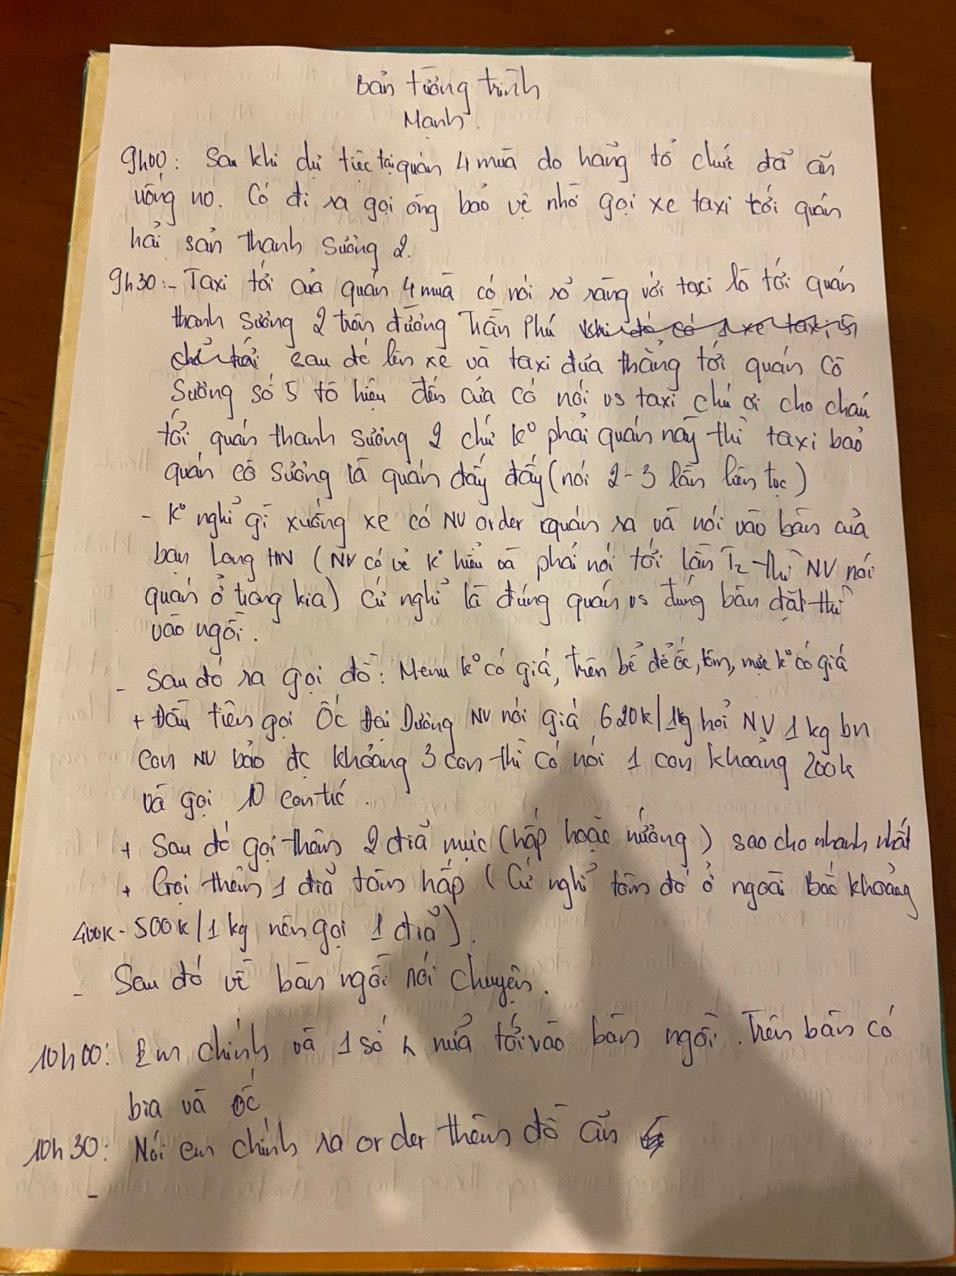 Bản tường trình
Mạnh.
9h00: Sau khi dự tiệc tại quán 4 mùa do hãng tổ chức đã ăn
uống no. Có đi ra gọi ông bảo vệ nhờ gọi xe taxi tới quán
hải sản thanh sương 2.
9h30:- Taxi tới cửa quán 4 mùa có nói rõ ràng với taxi là tới quán
thanh sương 2 trên đường Trần Phú khi đó có 1 xe taxi
sau đó lên xe và taxi đưa thẳng tới quán Cô
Sương số 5 tô hiệu đến cửa có nói vs taxi chú ơi cho cháu
tới quán thanh sương 2 chứ k° phải quán này thì taxi bảo
quán cô sương là quán đấy đấy (nói 2-3 lần liên tục)
- k° nghĩ gì xuống xe có NV order quán ra và nói vào bàn của
bạn Long HN (NV có vẻ k° hiểu và phải nói tới lần T2 thì NV nói
quán ở trong kia) Cứ nghĩ là đúng quán vs đúng bàn đặt thì
vào ngồi.
- Sau đó ra gọi đồ: Menu k° có giá, trên bể để ốc, tôm, mực k° có giá
+ Đầu tiên gọi Ốc Đại Dương NV nói giá 620k/1kg hỏi NV 1 kg bn
con NV bảo đc khoảng 3 con thì có nói 1 con khoảng 200k
và gọi 10 con
+ Sau đó gọi thêm 2 đĩa mực (hấp hoặc nướng) sao cho nhanh nhất
+ Gọi thêm 1 đĩa tôm hấp (Cứ nghĩ tôm đó ở ngoài bắc khoảng
400k-500k/1kg nên gọi 1 đĩa).
- Sau đó về bàn ngồi nói chuyện.
10h00: Em chính và 1 số nữa tới vào bàn ngồi. Trên bàn có
bia và ốc
10h30: Nói em chính ra order thêm đồ ăn
-